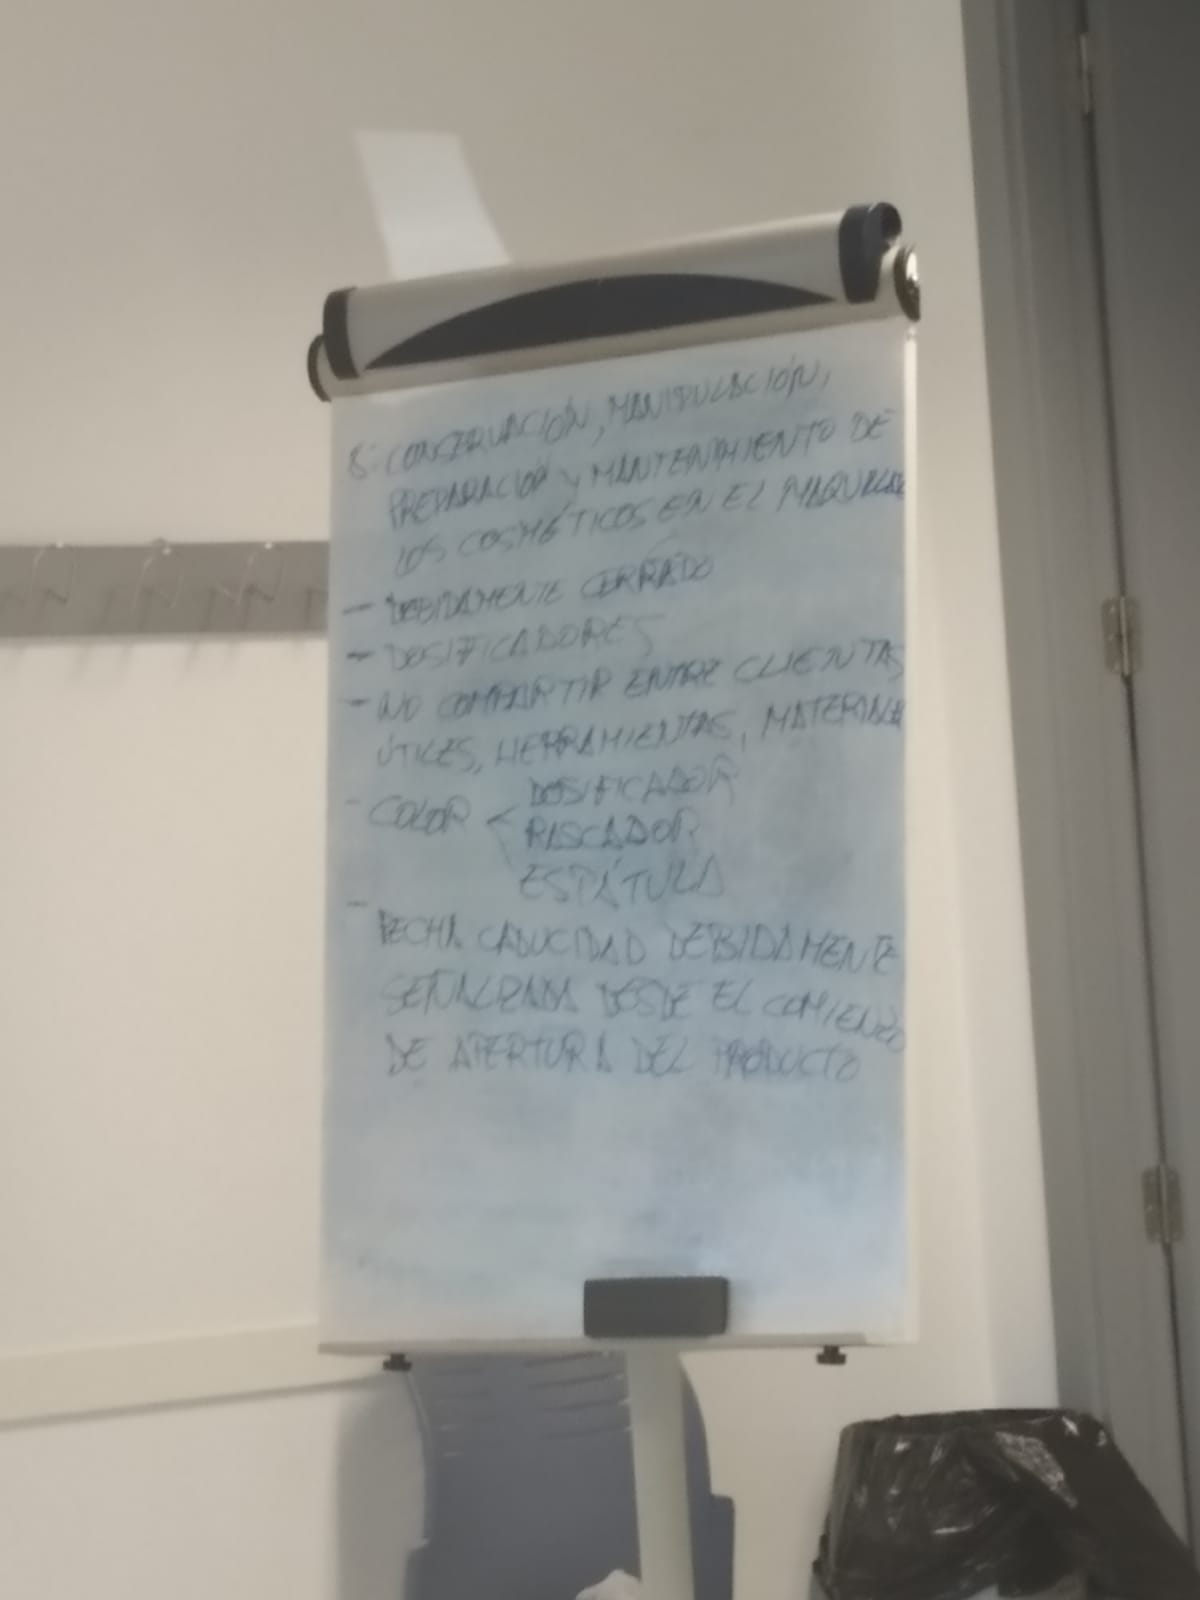 8- CONSERVACIÓN, MANIPULACIÓN,
PREPARACIÓN Y MANTENIMIENTO DE
LOS COSMÉTICOS EN EL MAQUILLAJE
- DEBIDAMENTE CERRADO
- DOSIFICADORES
- NO COMPARTIR ENTRE CLIENTAS
ÚTILES, HERRAMIENTAS, MATERIALES
- COLOR < DOSIFICADOR
RASCADOR
ESPÁTULA
- FECHA CADUCIDAD DEBIDAMENTE
SEÑALIZADA DESDE EL COMIENZO
DE APERTURA DEL PRODUCTO